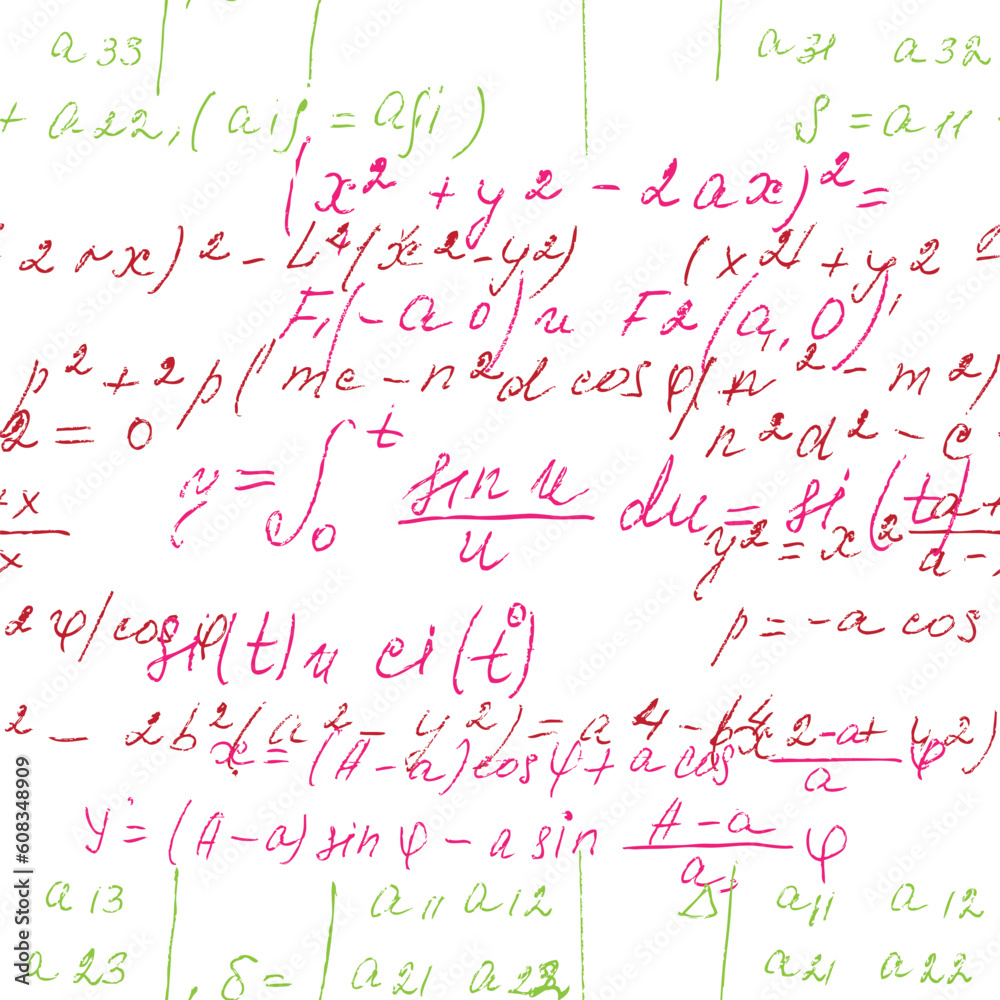 a 33 a 31 a 32
+ a 22, (aij = aji) S = a 11
(x² + y 2 - 2ax)² =
2rx)² - L⁴(x2-y2) (x² + y 2
F1(-a 0) и F2(a, 0),
p² + 2p(mc - n²d cos φ)(n² - m²)
2 = 0 n²d² - c
y = ∫₀ᵗ sin u / u du = si (t)
y² = x² a + / a -
+x / x
2 φ/cos φ p = -a cos
si(t) и ci(t)
² - 2b²(a² - y²) = a⁴ - b⁴ x2 y2)
x = (A-a)cos φ + a cos -a+ / a φ
y = (A-a) sin φ - a sin A-a / a φ
a 13 a 11 a 12 Δ a 11 a 12
a 23 , δ = a 21 a 22 a 21 a 22
Adobe Stock | #608348909